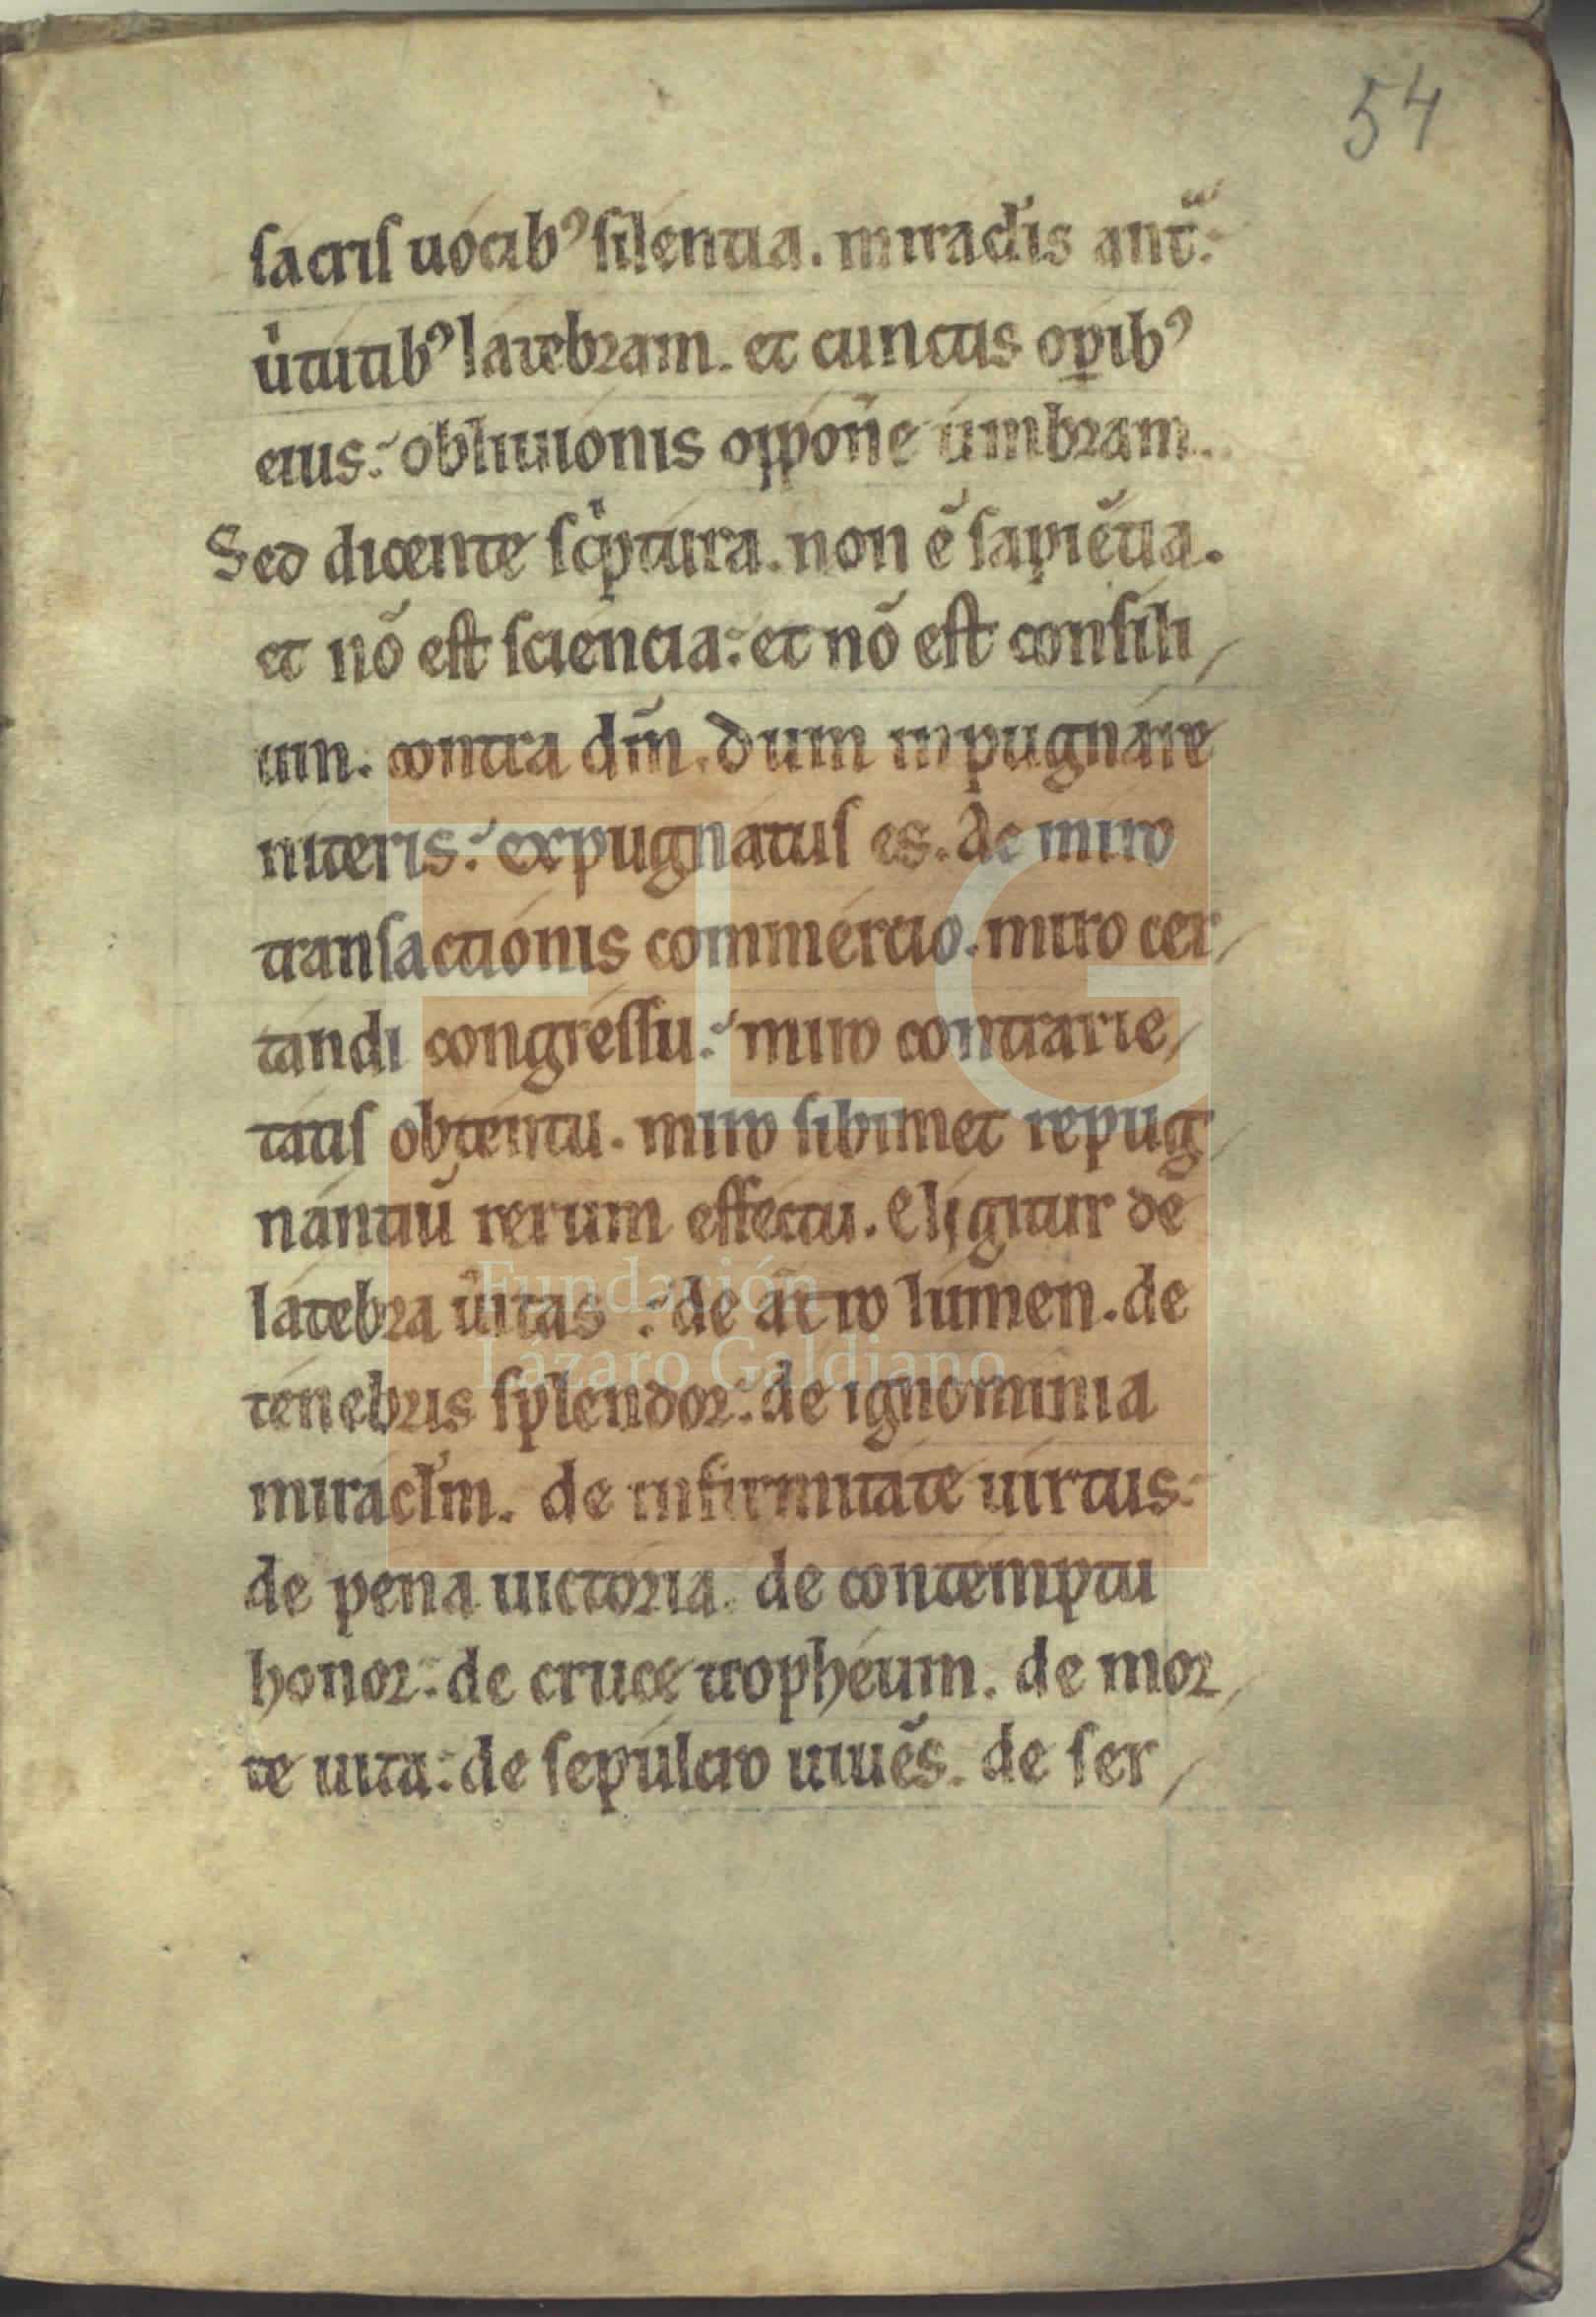 54
sacris uocib⁹ silentia. miraclis antr̄.
u̾tutib⁹ latebram. et cunctis op̱ib⁹
eius. obliuionis oppon̄e umbram.
Sed dicente scͥptura. non ē sapiēcia.
et nō est sciencia. et nō est consili/
um. contra dm̄. dum inpugnare
niteris. expugnatus es. de miro
transactionis commercio. miro cer/
tandi congressu. miro contrarie/
tatis obtentu. miro sibimet repug/
nantiū rerum effectu. Eligitur de
latebra ūitas. de atro lumen. de
tenebris splendor. de ignominia
miraclm̄. de infirmitate uirtus.
de pena uictoria. de contemptu
honor. de cruce tropheum. de mor/
te uita. de sepulcro uiuēs. de ser/
FLG
Fundación
Lázaro Galdiano